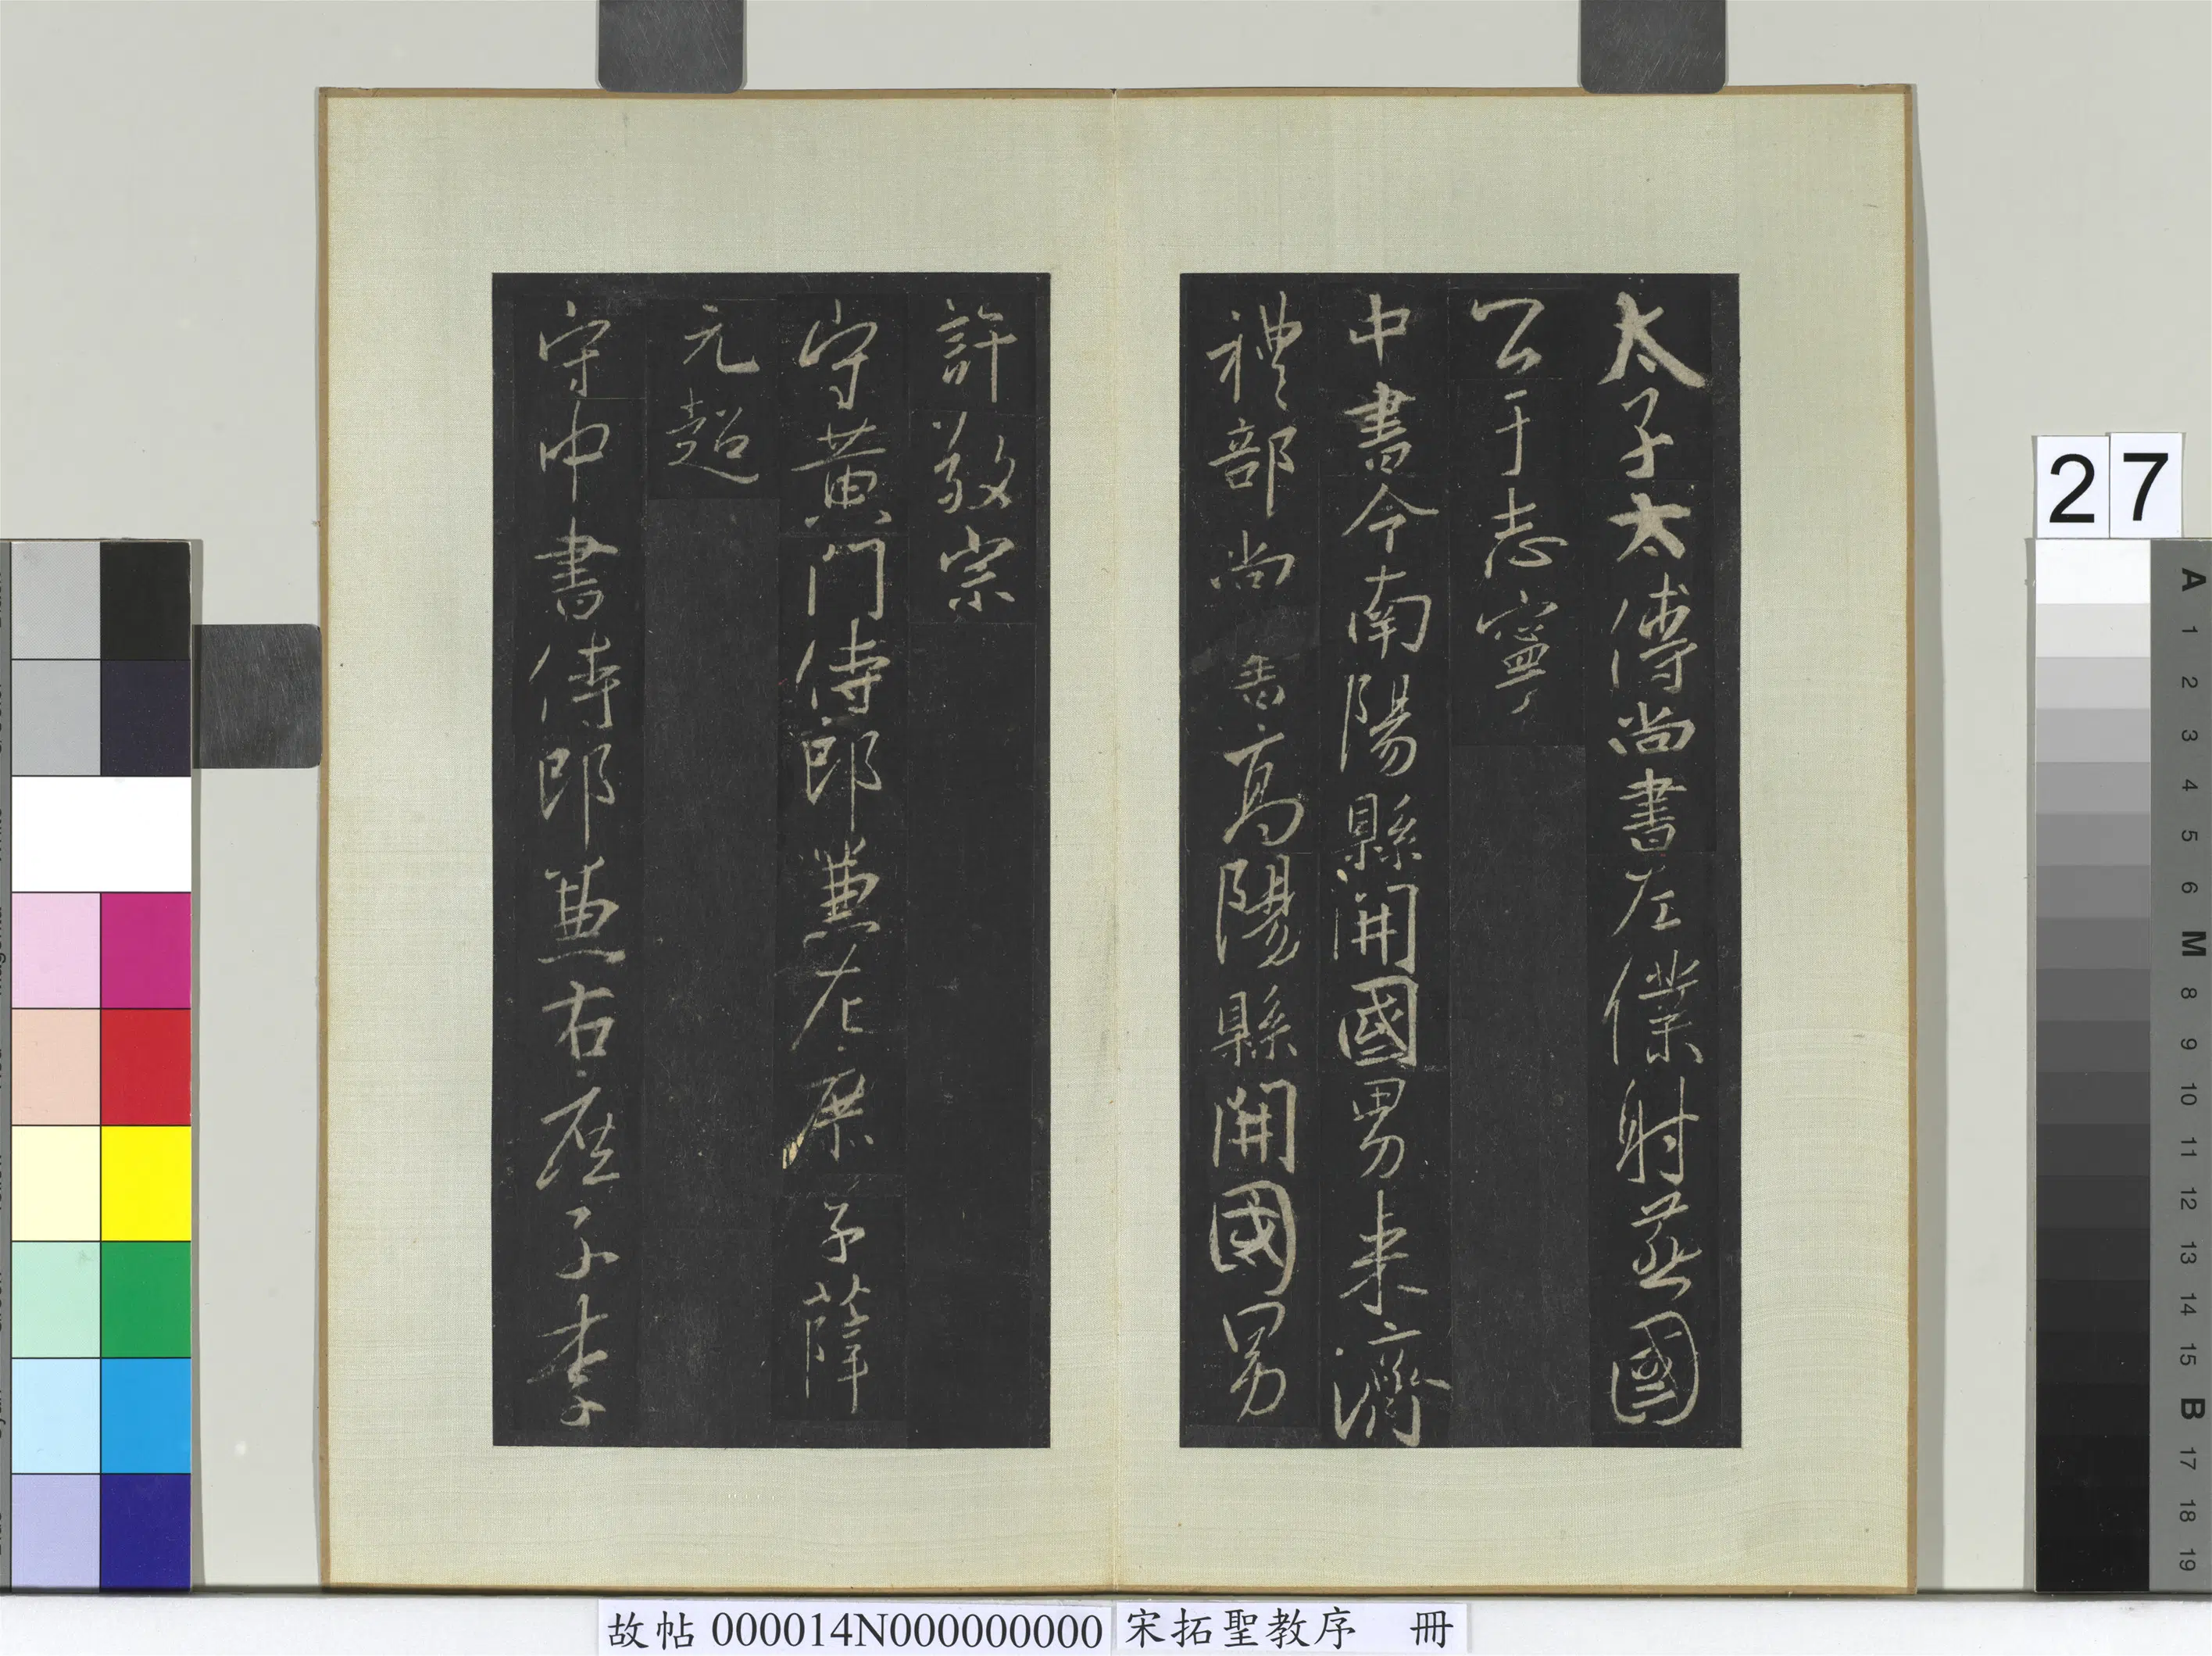 太子太傅尚書左僕射燕國
公于志寧
中書令南陽縣開國男来濟
禮部尚書高陽縣開國男
許敬宗
守黃門侍郎兼左庶子薛
元超
守中書侍郎兼右庶子李
27
A 1 2 3 4 5 6 M 8 9 10 11 12 13 14 15 B 17 18 19
故帖 000014N000000000 宋拓聖教序 冊